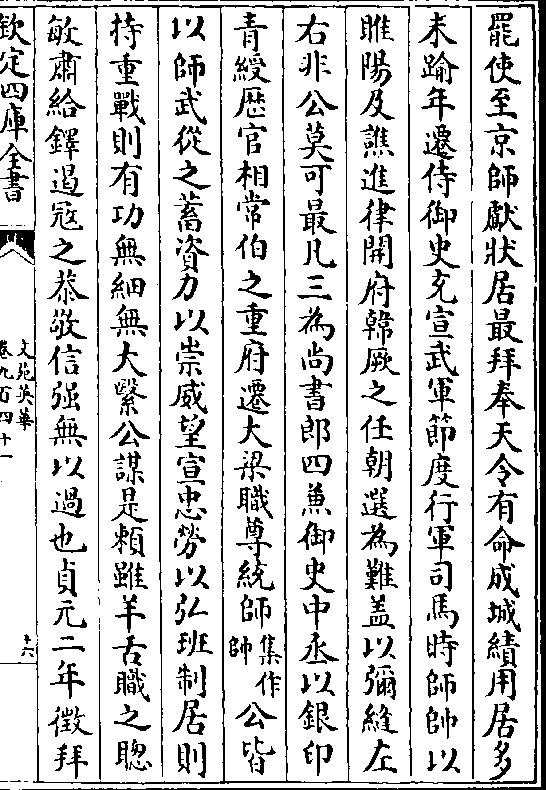 罷使至京師獻狀居最拜奉天令有命成城績用居多
未踰年遷侍御史充宣武軍節度行軍司馬時師帥以
睢陽及譙進律開府韓厥之任朝選為難盖以彌縫左
右非公莫可最凡三為尚書郎四兼御史中丞以銀印
青綬歴官相常伯之重府遷大梁職尊統師集作帥公皆
以師武從之蓄資力以崇威望宣忠勞以弘班制居則
持重戰則有功無細無大繄公謀是賴雖羊舌職之聰
敏肅給鐸遏宼之恭敬信强無以過也貞元二年徵拜
欽定四庫全書
文苑英華
卷九百四十一
十六